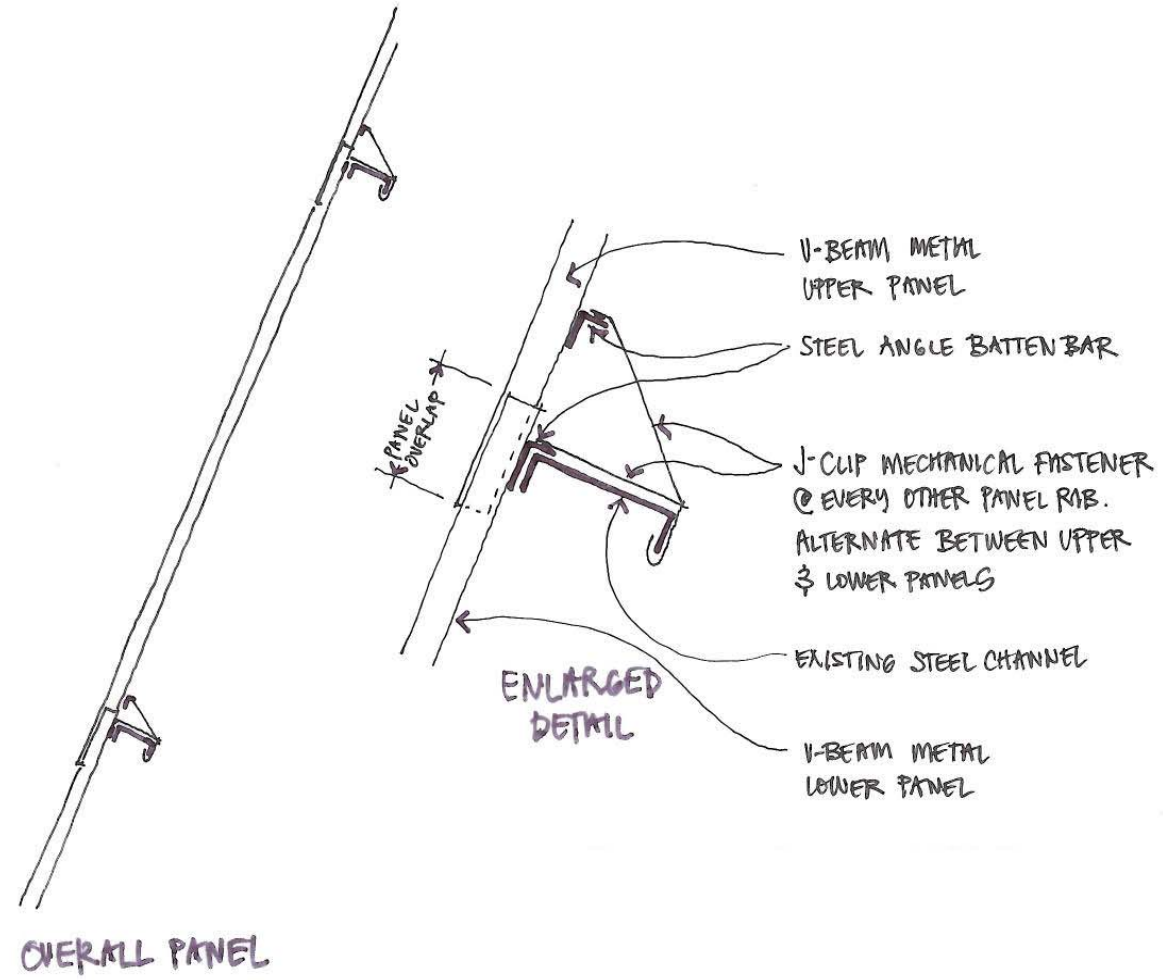 V-BEAM METAL
UPPER PANEL
STEEL ANGLE BATTEN BAR
PANEL
OVERLAP
J-CLIP MECHANICAL FASTENER
@ EVERY OTHER PANEL RIB.
ALTERNATE BETWEEN UPPER
& LOWER PANELS
EXISTING STEEL CHANNEL
ENLARGED
DETAIL
V-BEAM METAL
LOWER PANEL
OVERALL PANEL